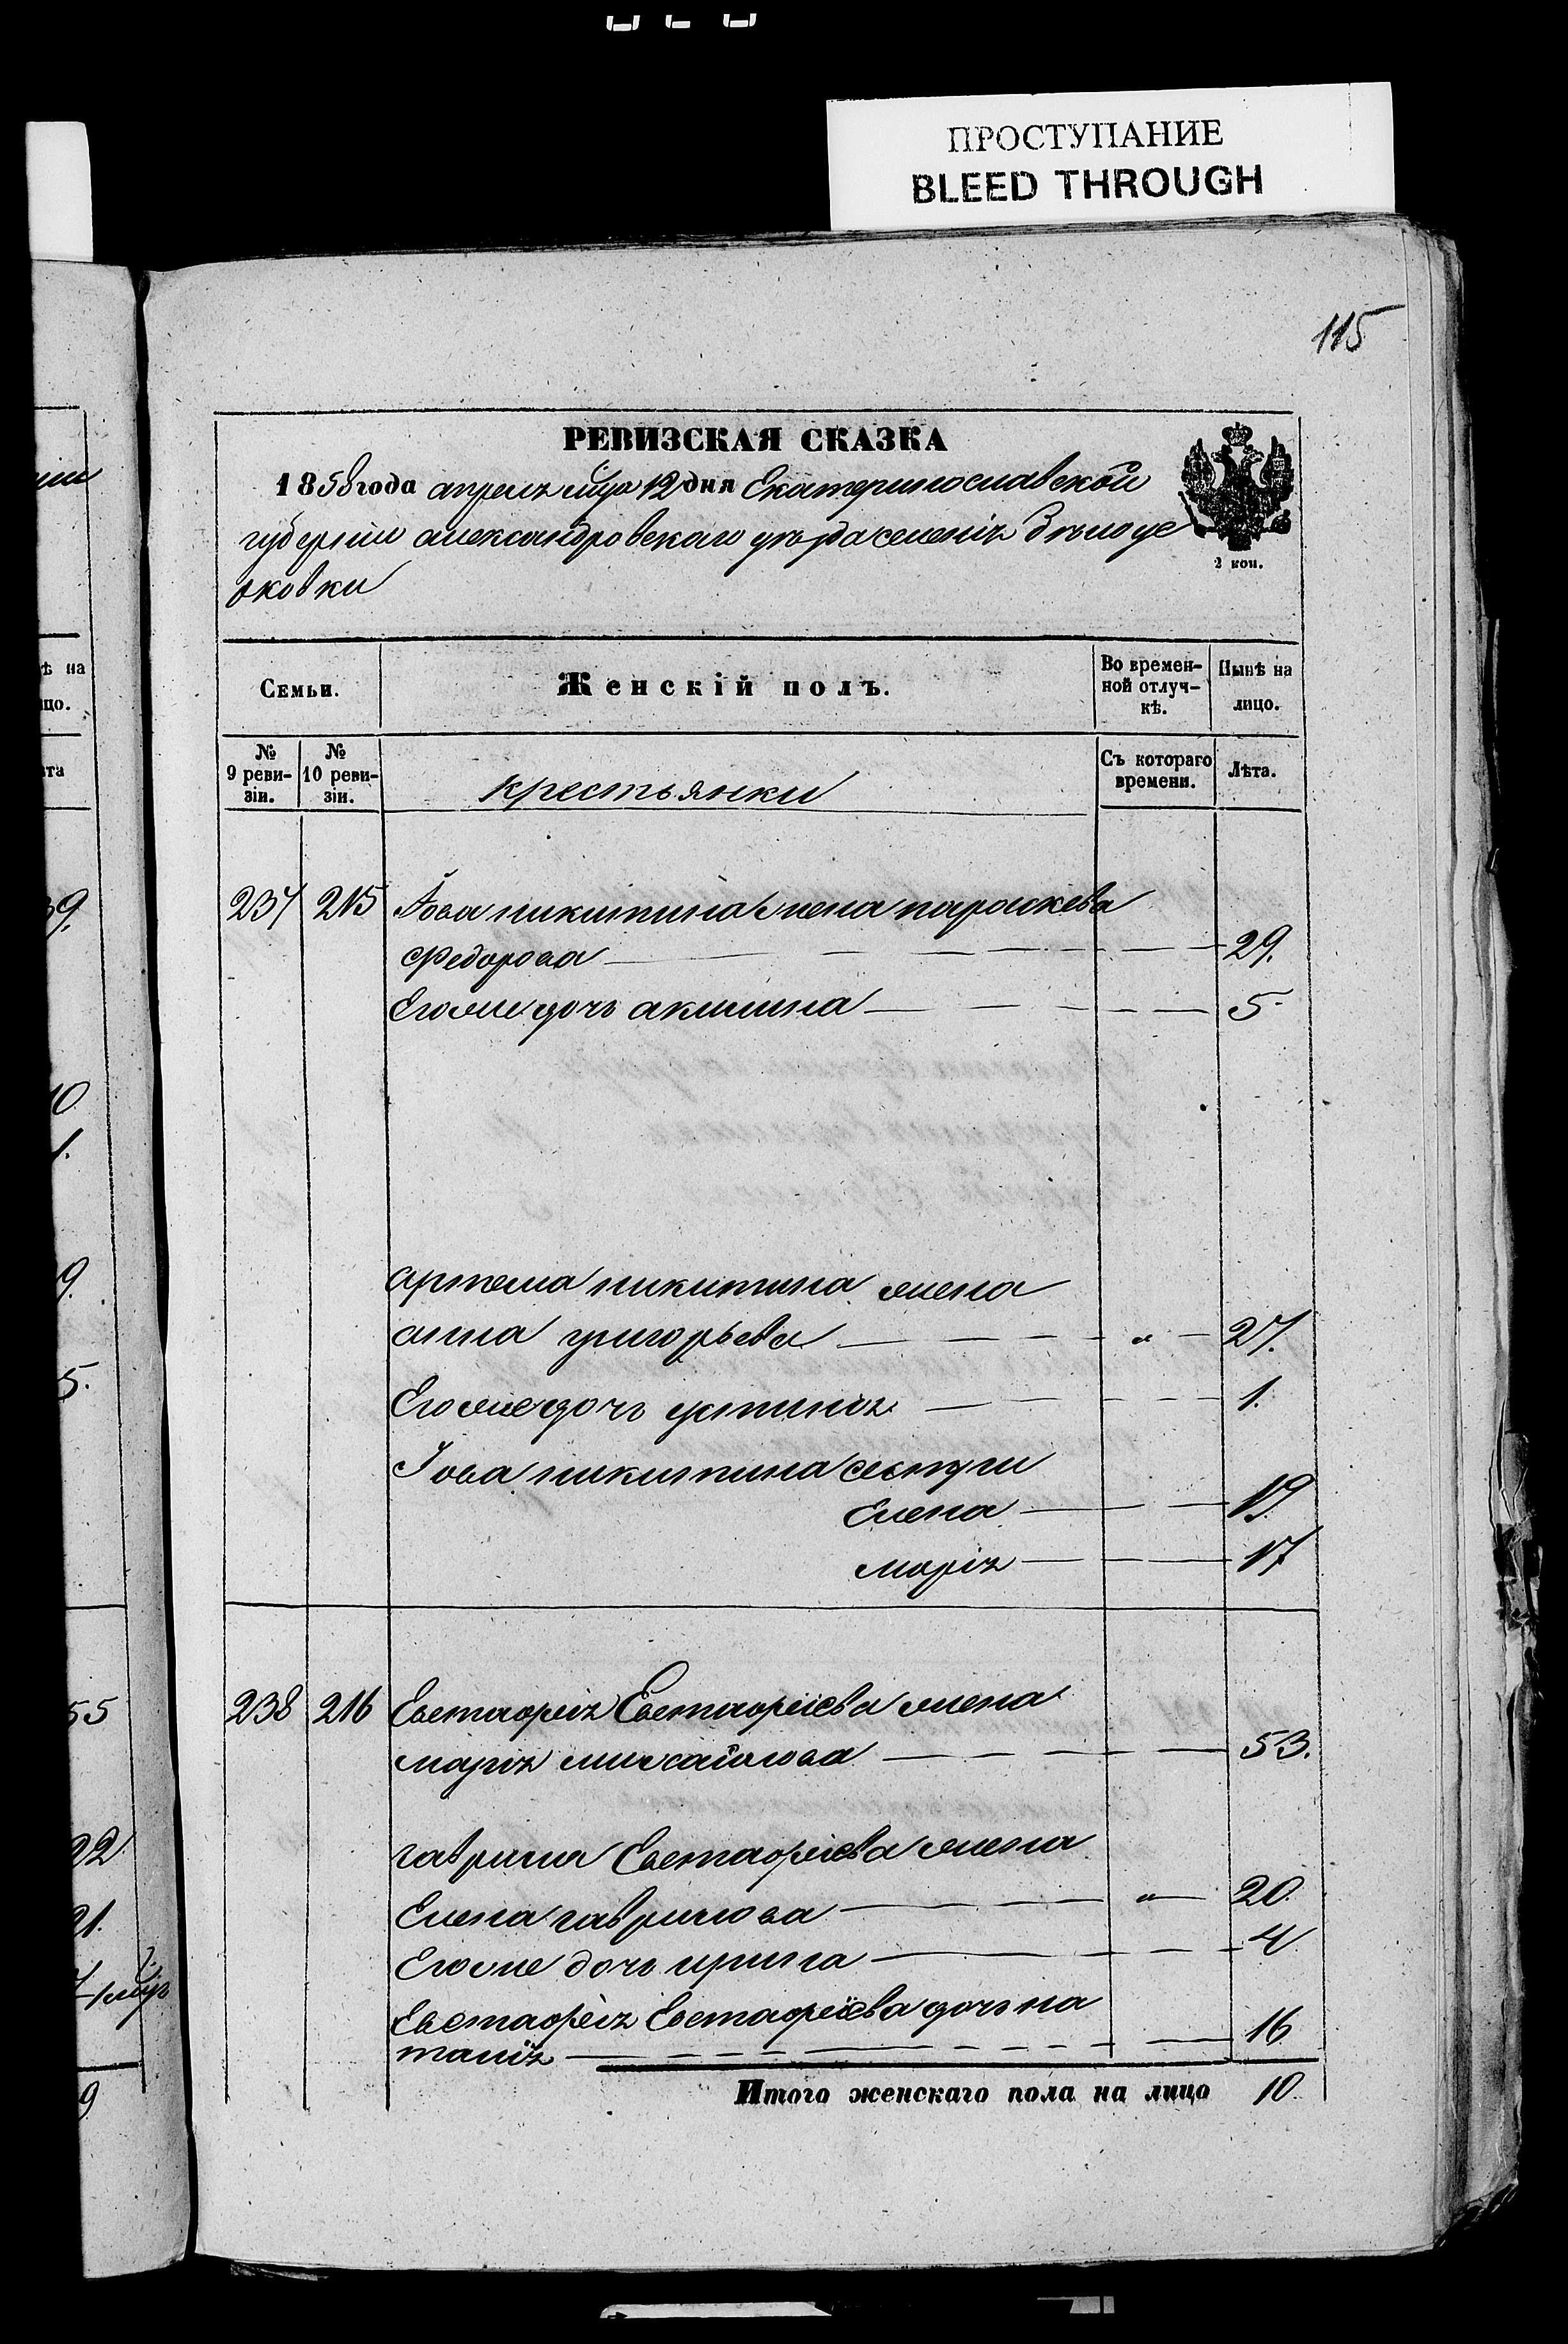 ПРОСТУПАНИЕ
BLEED THROUGH
115
РЕВИЗСКАЯ СКАЗКА
1858 года апреля мца 12 дня Екатеринославской
губернии александровскаго уезда селенія
2 коп.
Семьи.
Женскій полъ.
Во времен-
ной отлуч-
кѣ.
Нынѣ на
лицо.
№
9 реви-
зіи.
№
10 реви-
зіи.
крестьянки
Съ котораго
времени.
Лѣта.
237 215 Іова никитина жена параскева
Федорова 29.
Егоже дочь акилина 5
артема никитина жена
анна григорьева „ 27.
Егоже дочь устинія 1.
Іова никитина сестри
Елена 19.
марія 17
238 216 Евстафія Евстафіева жена
марія михайлова 53.
гаврила Евстафіева жена
Елена гаврилова „ 20
Егоже дочь ирина 4
Евстафія Евстафіева дочь на
талія 16
Итого женскаго пола на лицо 10